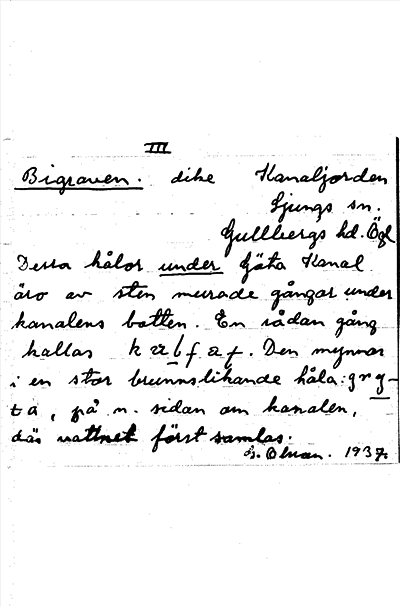 III
Bigraven. dike Kanaljorden
Ljungs sn.
Gullbergs hd. Ögl
Dessa hålor under Göta Kanal
äro av sten murade gångar under
kanalens botten. En sådan gång
kallas
Den mynnar
i en stor brunnslikande håla: gry-
ta, på n. sidan om kanalen,
där vattnet först samlas.
1937.